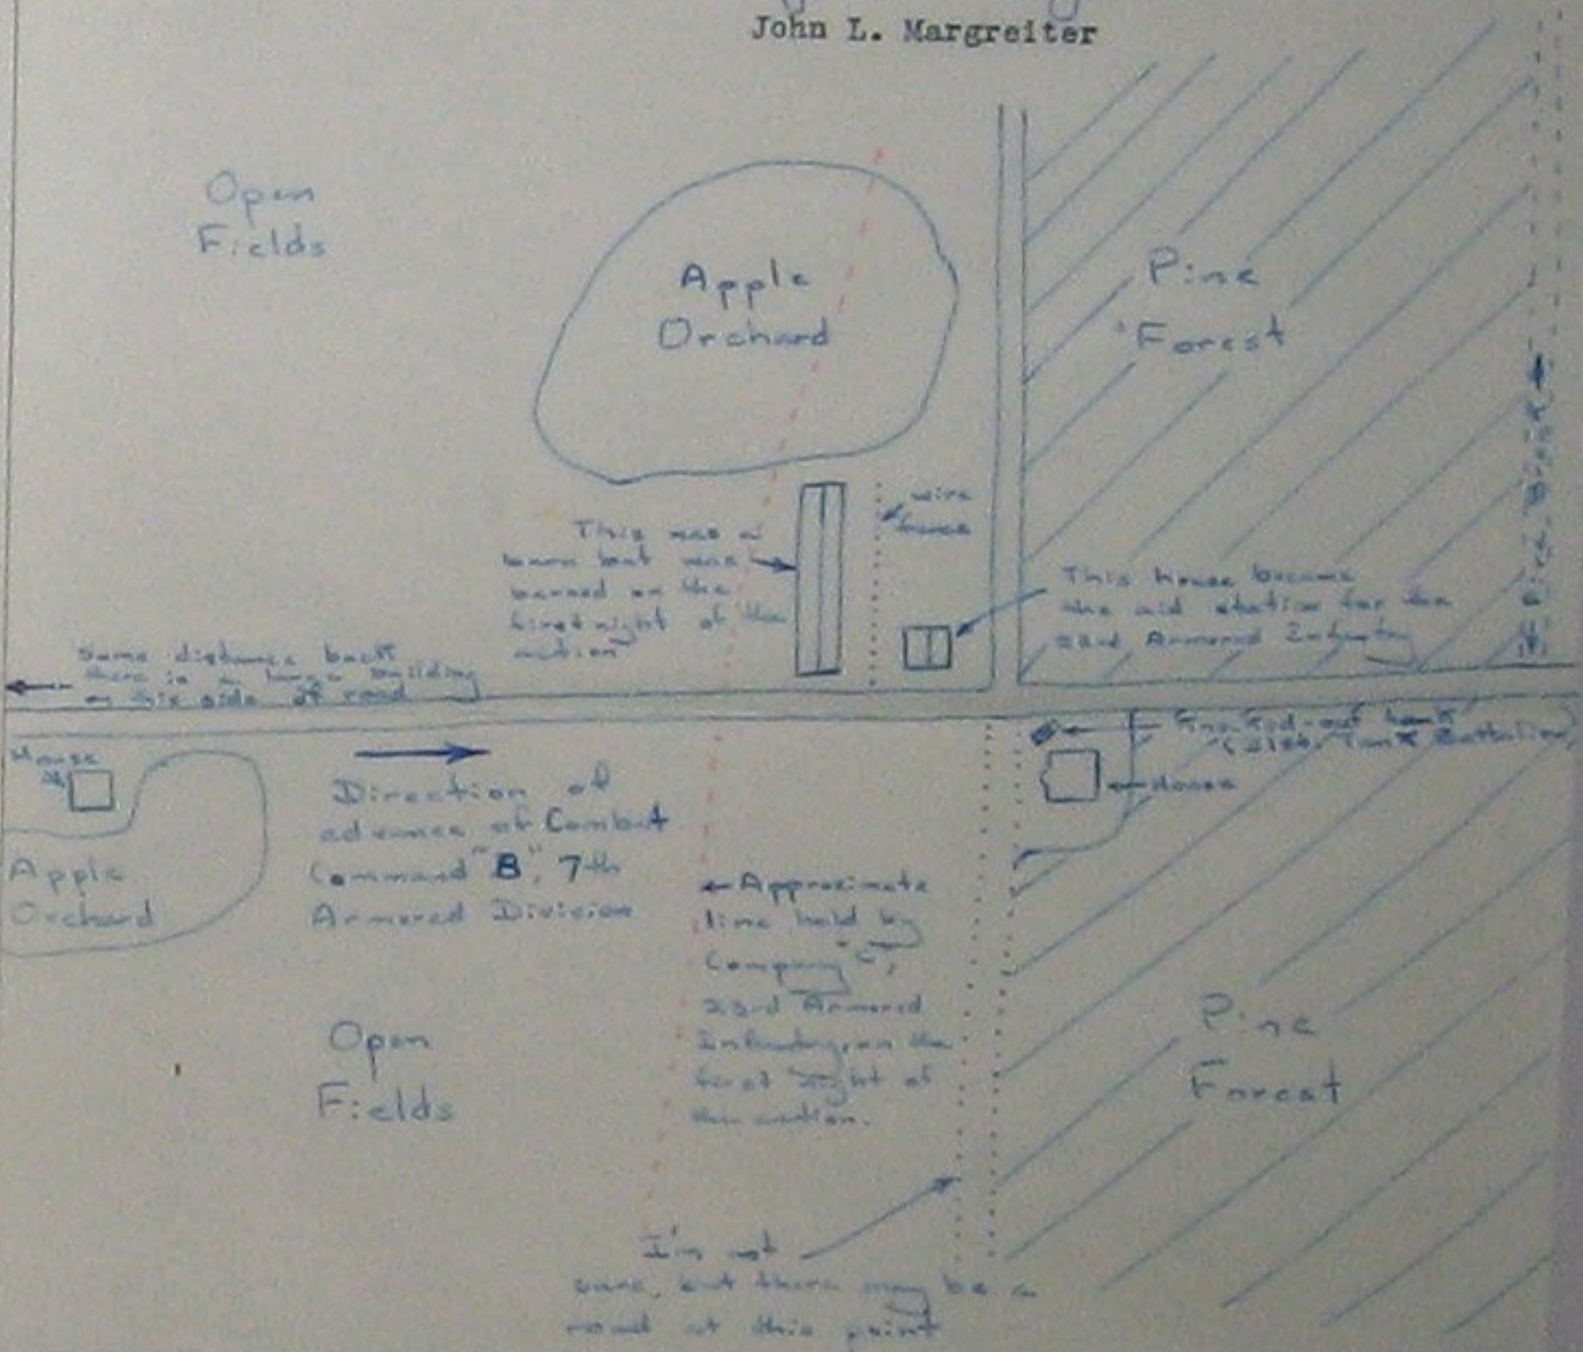 John L. Margreiter
Open
Fields
Apple
Orchard
Pine
Forest
wire
fence
This was a
barn but was
burned on the
first night of the
action
This house became
the aid station for the
23rd Armored Infantry
Some distance back
there is a large building
on this side of road
House
Apple
Orchard
Direction of
advance of Combat
Command "B", 7th
Armored Division
Knocked-out tank
(31st Tank Battalion)
House
Approximate
line held by
Company "C",
23rd Armored
Infantry, on the
first night of
the action.
Open
Fields
Pine
Forest
I'm not
sure, but there may be a
road at this point